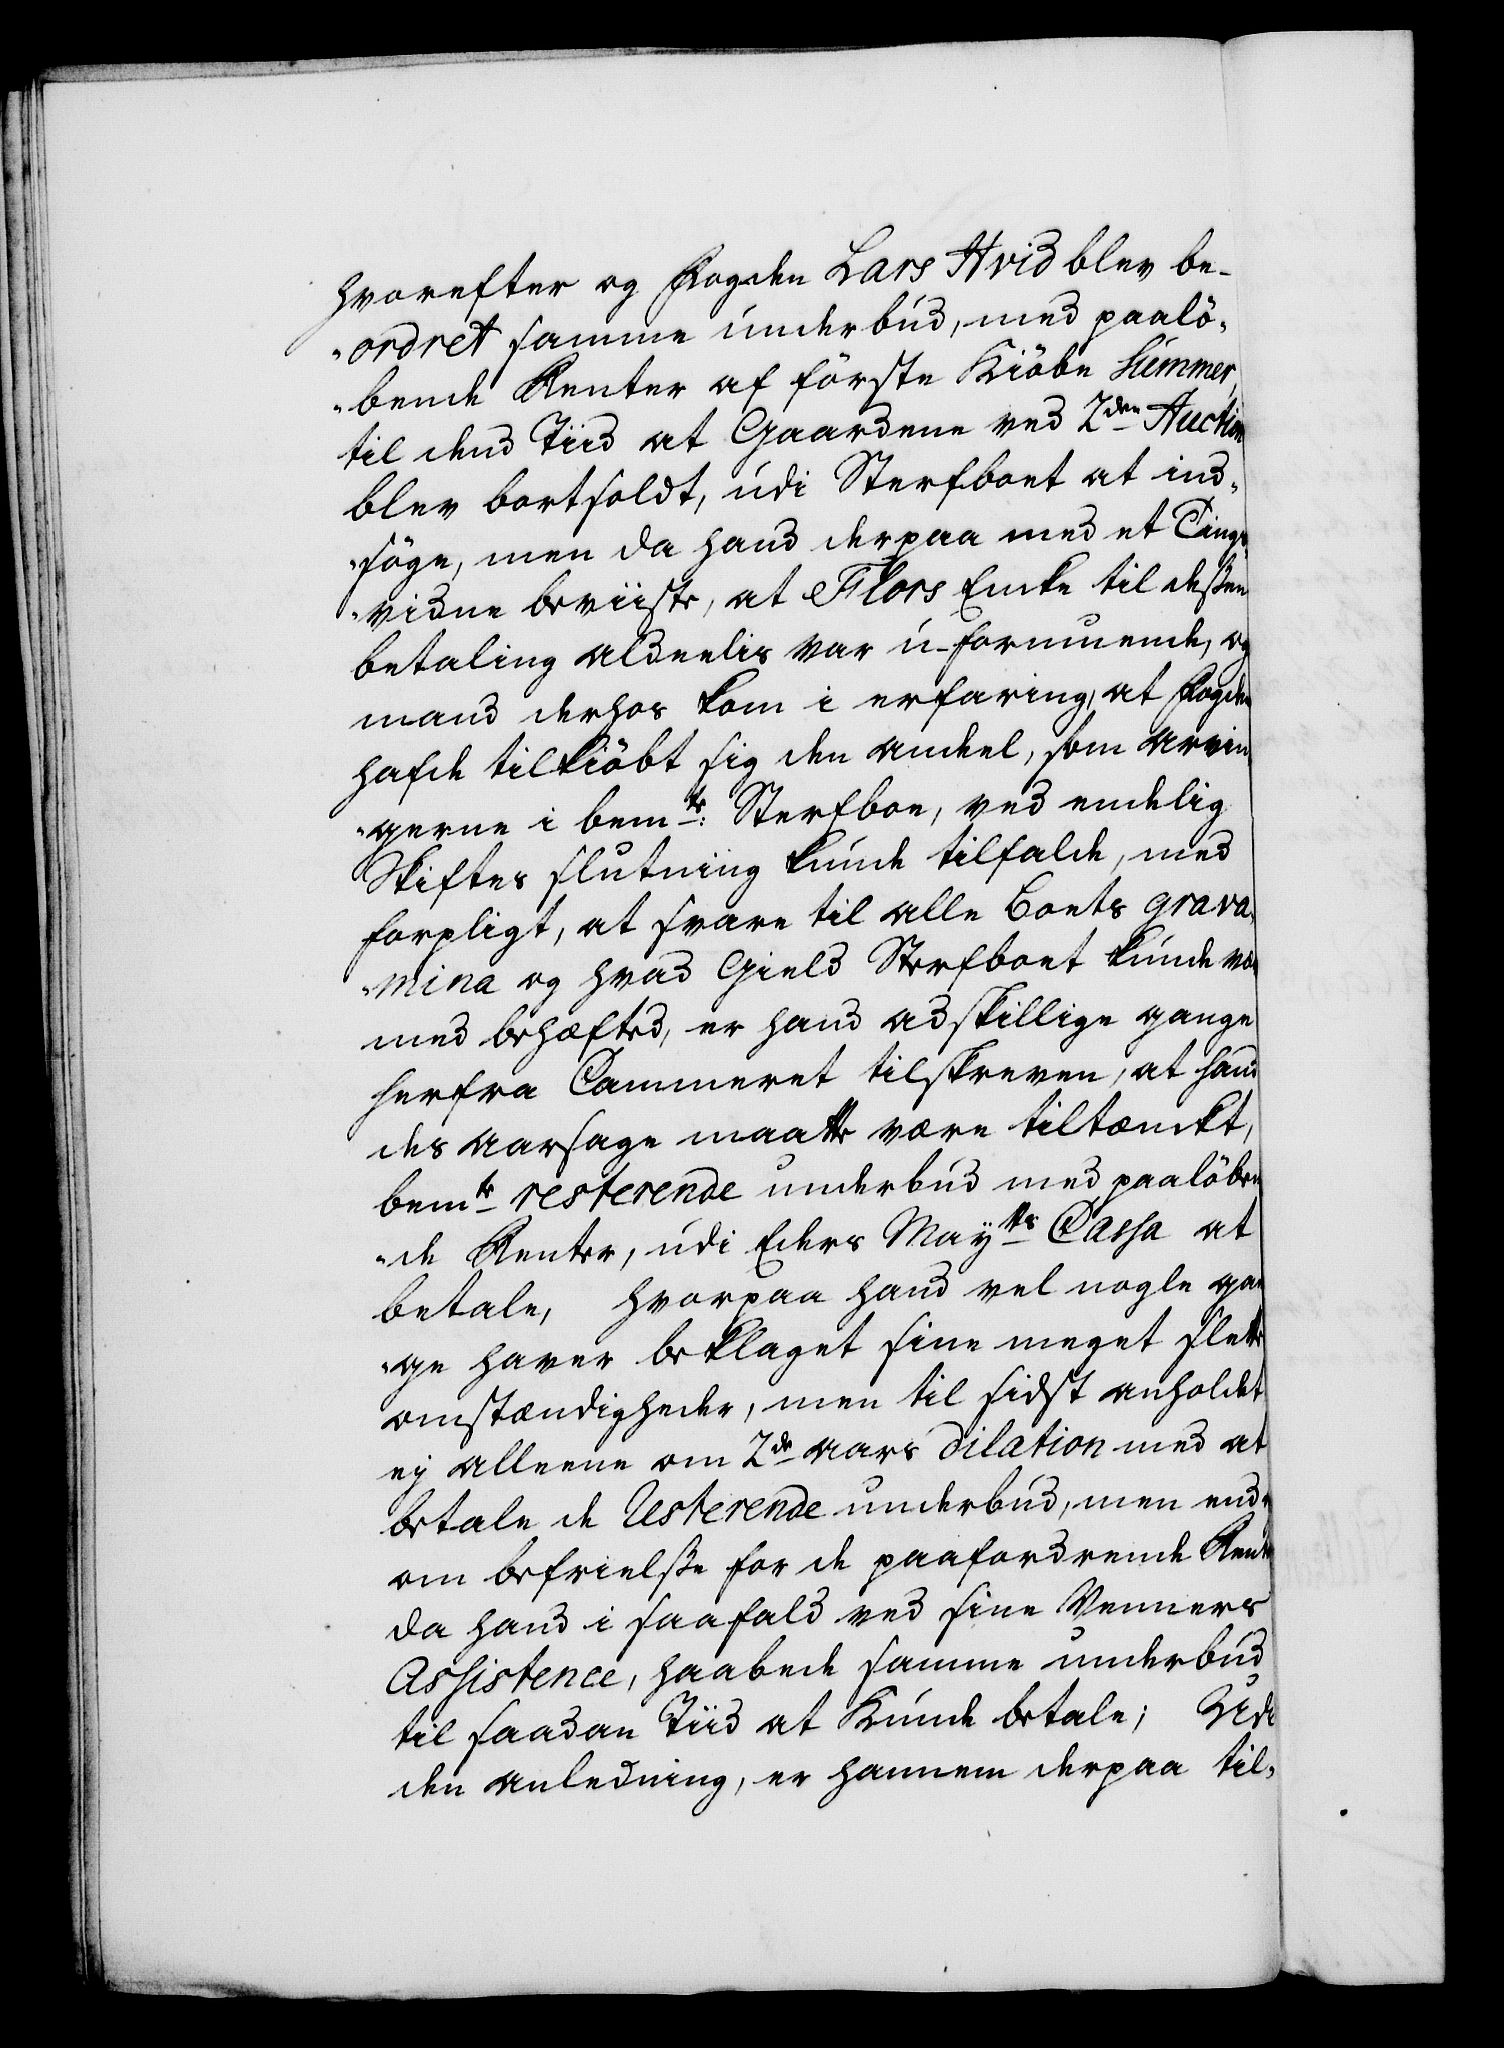 hvorefter og Fogden Lars Hvid blev be-
„ordret samme underbud, med paalö„
„bende Renter af förste Kiöbe Summer,
til dend Tiid at Gaardene ved 2den Auction
blev bortsoldt, udi Sterfboet at ind„
„söge, men da hand derpaa med et Tings
„vidne beviiste, at Flors Encke til dessen
betaling aldeelis var u-formuende, og
mand derhos kom i erfaring, at Fogden
hafde tilkiöbt sig den andeel, som arvin
„gerne i bemte: Sterfboe, ved endelig
Skiftes slutning kunde tilfalde, med
forpligt, at svare til alle Boets grava„
„mina og hvad Gield Sterfboet kunde være
med behæfted, er hand adskillige gange
herfra Cammeret tilskreven, at hand
des aarsage maatte være tiltænckt,
bemte resterende underbud med paalöben
„de Renter, udi Eders Maytts Cassa at
betale, hvorpaa hand vel nogle gan
„ge haver beklaget sine meget slette
omstændigheder, men til sidst anholdet
ej alleene om 2de aars Dilation med at
betale de Resterende underbud, men end„
om befrielsse for de paafordrende Renter
da hand i saafald ved sine Venners
Assistence, haabede samme underbud
til saadan Tiid at kunde betale; Udi
den anledning, er hannem derpaa til„